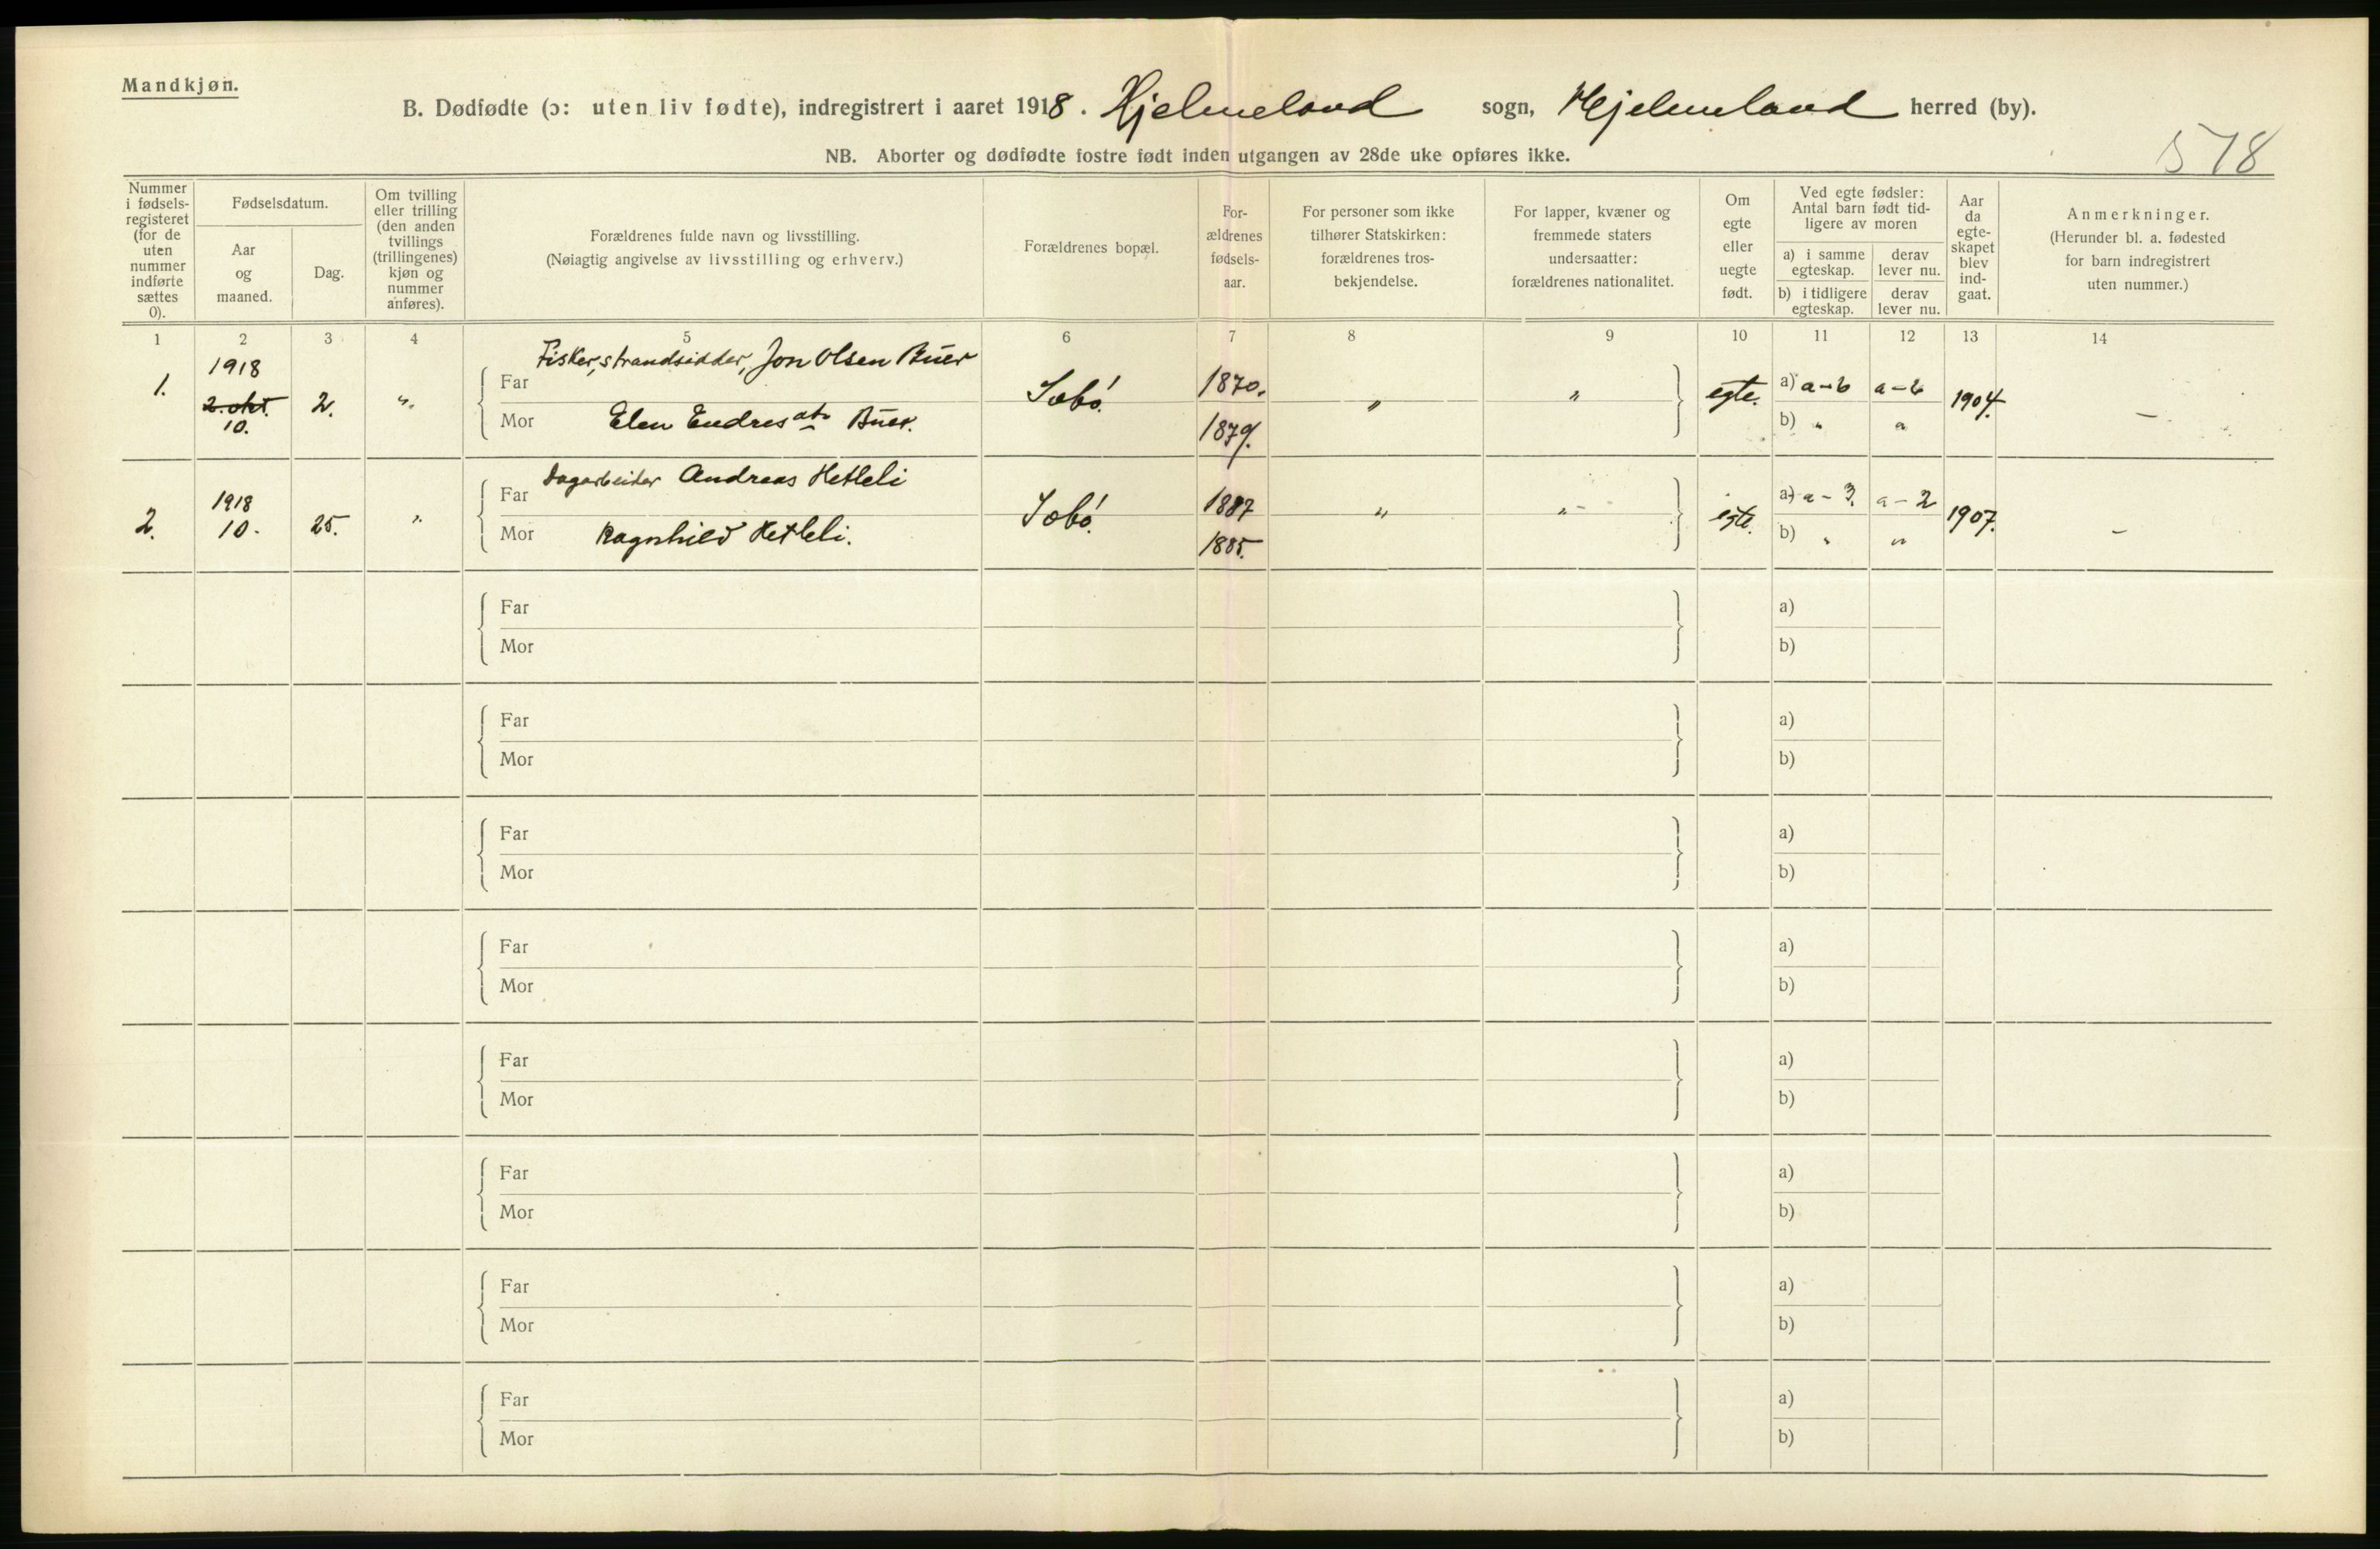 Mandkjøn.
B. Dødfødte (ɔ: uten liv fødte), indregistrert i aaret 1918. Hjelmeland sogn, Hjelmeland herred (by).
NB. Aborter og dødfødte fostre født inden utgangen av 28de uke opføres ikke.
578
Nummer i fødsels-registeret (for de uten nummer indførte sættes 0).
Fødselsdatum.
Aar og maaned.
Dag.
Om tvilling eller trilling (den anden tvillings (trillingenes) kjøn og nummer anføres).
Forældrenes fulde navn og livsstilling.
(Nøiagtig angivelse av livsstilling og erhverv.)
Forældrenes bopæl.
For-ældrenes fødsels-aar.
For personer som ikke tilhører Statskirken: forældrenes tros-bekjendelse.
For lapper, kvæner og fremmede staters undersaatter: forældrenes nationalitet.
Om egte eller uegte født.
Ved egte fødsler: Antal barn født tid-ligere av moren
a) i samme egteskap.
derav lever nu.
b) i tidligere egteskap.
derav lever nu.
Aar da egte-skapet blev ind-gaat.
Anmerkninger.
(Herunder bl. a. fødested for barn indregistrert uten nummer.)
1 2 3 4 5 6 7 8 9 10 11 12 13 14
1. 1918 2. okt. 10. 2. "
Fisker, strandsidder, Jon Olsen Buer
Far
Mor Elen Endresdtr Buer.
Sæbø. 1870. 1879. " " egte. a) a-6 a-6 b) " " 1904. —
2. 1918 10. 25. "
Dagarbeider Andreas Hetleli
Far
Mor Ragnhild Hetleli.
Sæbø. 1887 1885. " " egte. a) a-3. a-2 b) " " 1907. —
Far a)
Mor b)
Far a)
Mor b)
Far a)
Mor b)
Far a)
Mor b)
Far a)
Mor b)
Far a)
Mor b)
Far a)
Mor b)
Far a)
Mor b)